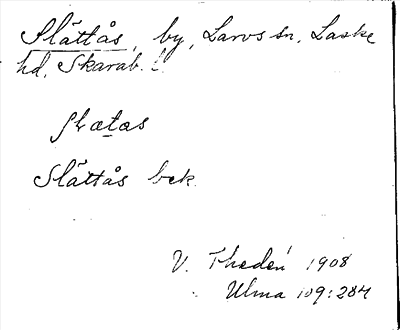 Slättås, by, Larvs sn, Laske
hd, Skarab. l.
slætås
Slättås bek.
V. Thedén 1908
Ulma 109:284